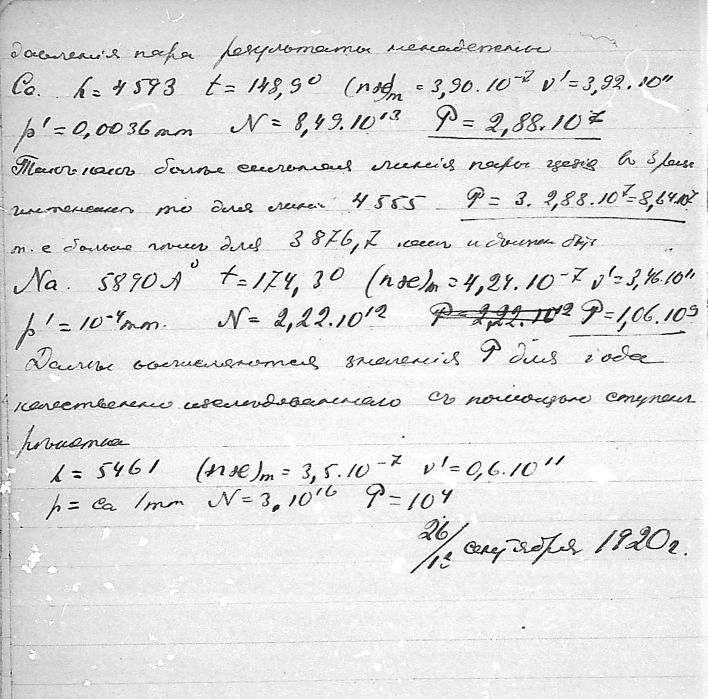 давленія пара результаты ненадежны
Cs. λ = 4593 t = 148,9° (næ)m = 3,90.10⁻⁷ ν' = 3,92.10¹¹
p' = 0,0036 mm N = 8,49.10¹³ P = 2,88.10⁷
Такъ какъ болѣе сильная линія пары цезія в 3 раза
интенсивн то для линіи 4555 P = 3. 2,88.10⁷ = 8,64.10⁷
т. е больше чѣмъ для 3876,7 какъ и должно быть
Na. 5890 A° t = 174,3° (næ)m = 4,24.10⁻⁷ ν' = 3,46.10¹¹
p' = 10⁻⁴ mm. N = 2,22.10¹² P = 2,22.10¹² P = 1,06.10⁹
Далѣе вычисляются значенія P для іода
качественно изслѣдованнаго съ помощью ступенч
рѣшетки
λ = 5461 (næ)m = 3,5.10⁻⁷ ν' = 0,6.10¹¹
p = ca 1 mm N = 3.10¹⁶ P = 10⁴
26/13 сентября 1920 г.